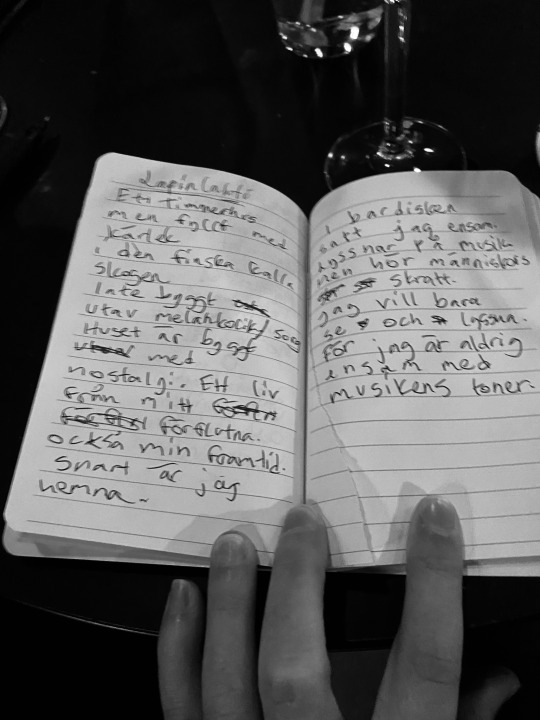 Lapinlahti
Ett timmerhus
men fyllt med
kärlek
i den finska kalla
skogen
late byggt
utav melankolik/sorg
Huset är byggt
med
nostalgi. Ett liv
från mitt
förflutna.
också min framtid.
Snart är jag
hemma.
i bardisken
satt jag ensam.
lyssnar på musik
men hör människors
skratt.
jag vill bara
se och lyssna.
för jag är aldrig
ensam med
musikens toner.